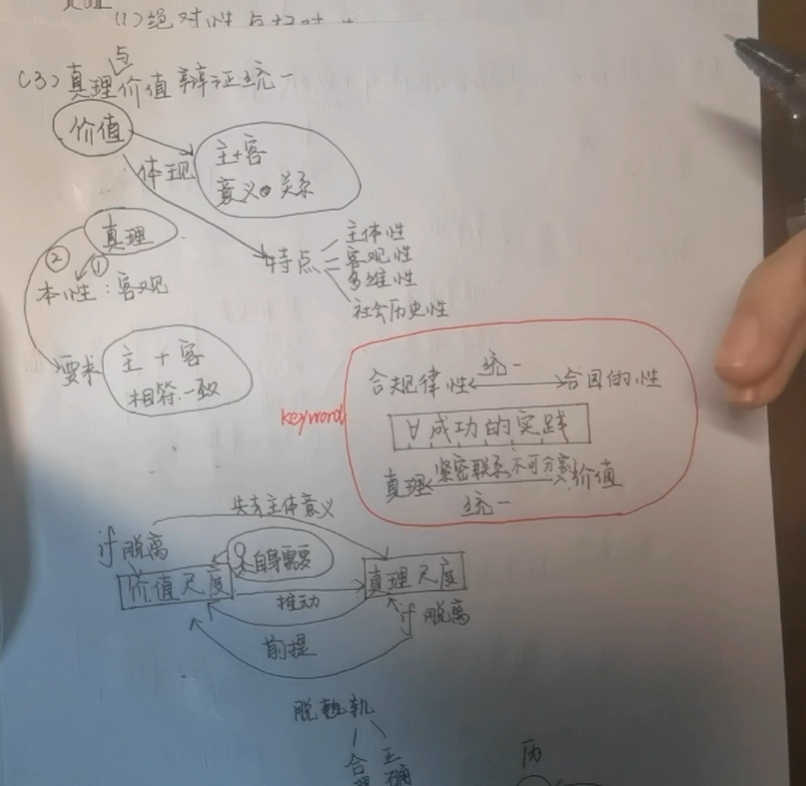 (1)绝对性与相对
(3)真理与价值 辩证统一
价值
体现
主+客
意义 关系
特点
主体性
客观性
多维性
社会历史性
真理
②
①
本性:客观
要求
主 + 客
相符.一致
keyword
合规律性 统一 合目的性
∀成功的实践
真理 紧密联系,不可分割 价值
统一
失去主体意义
if 脱离
自身需要
价值尺度
真理尺度
推动
if 脱离
前提
脱轨
合 正
确
历